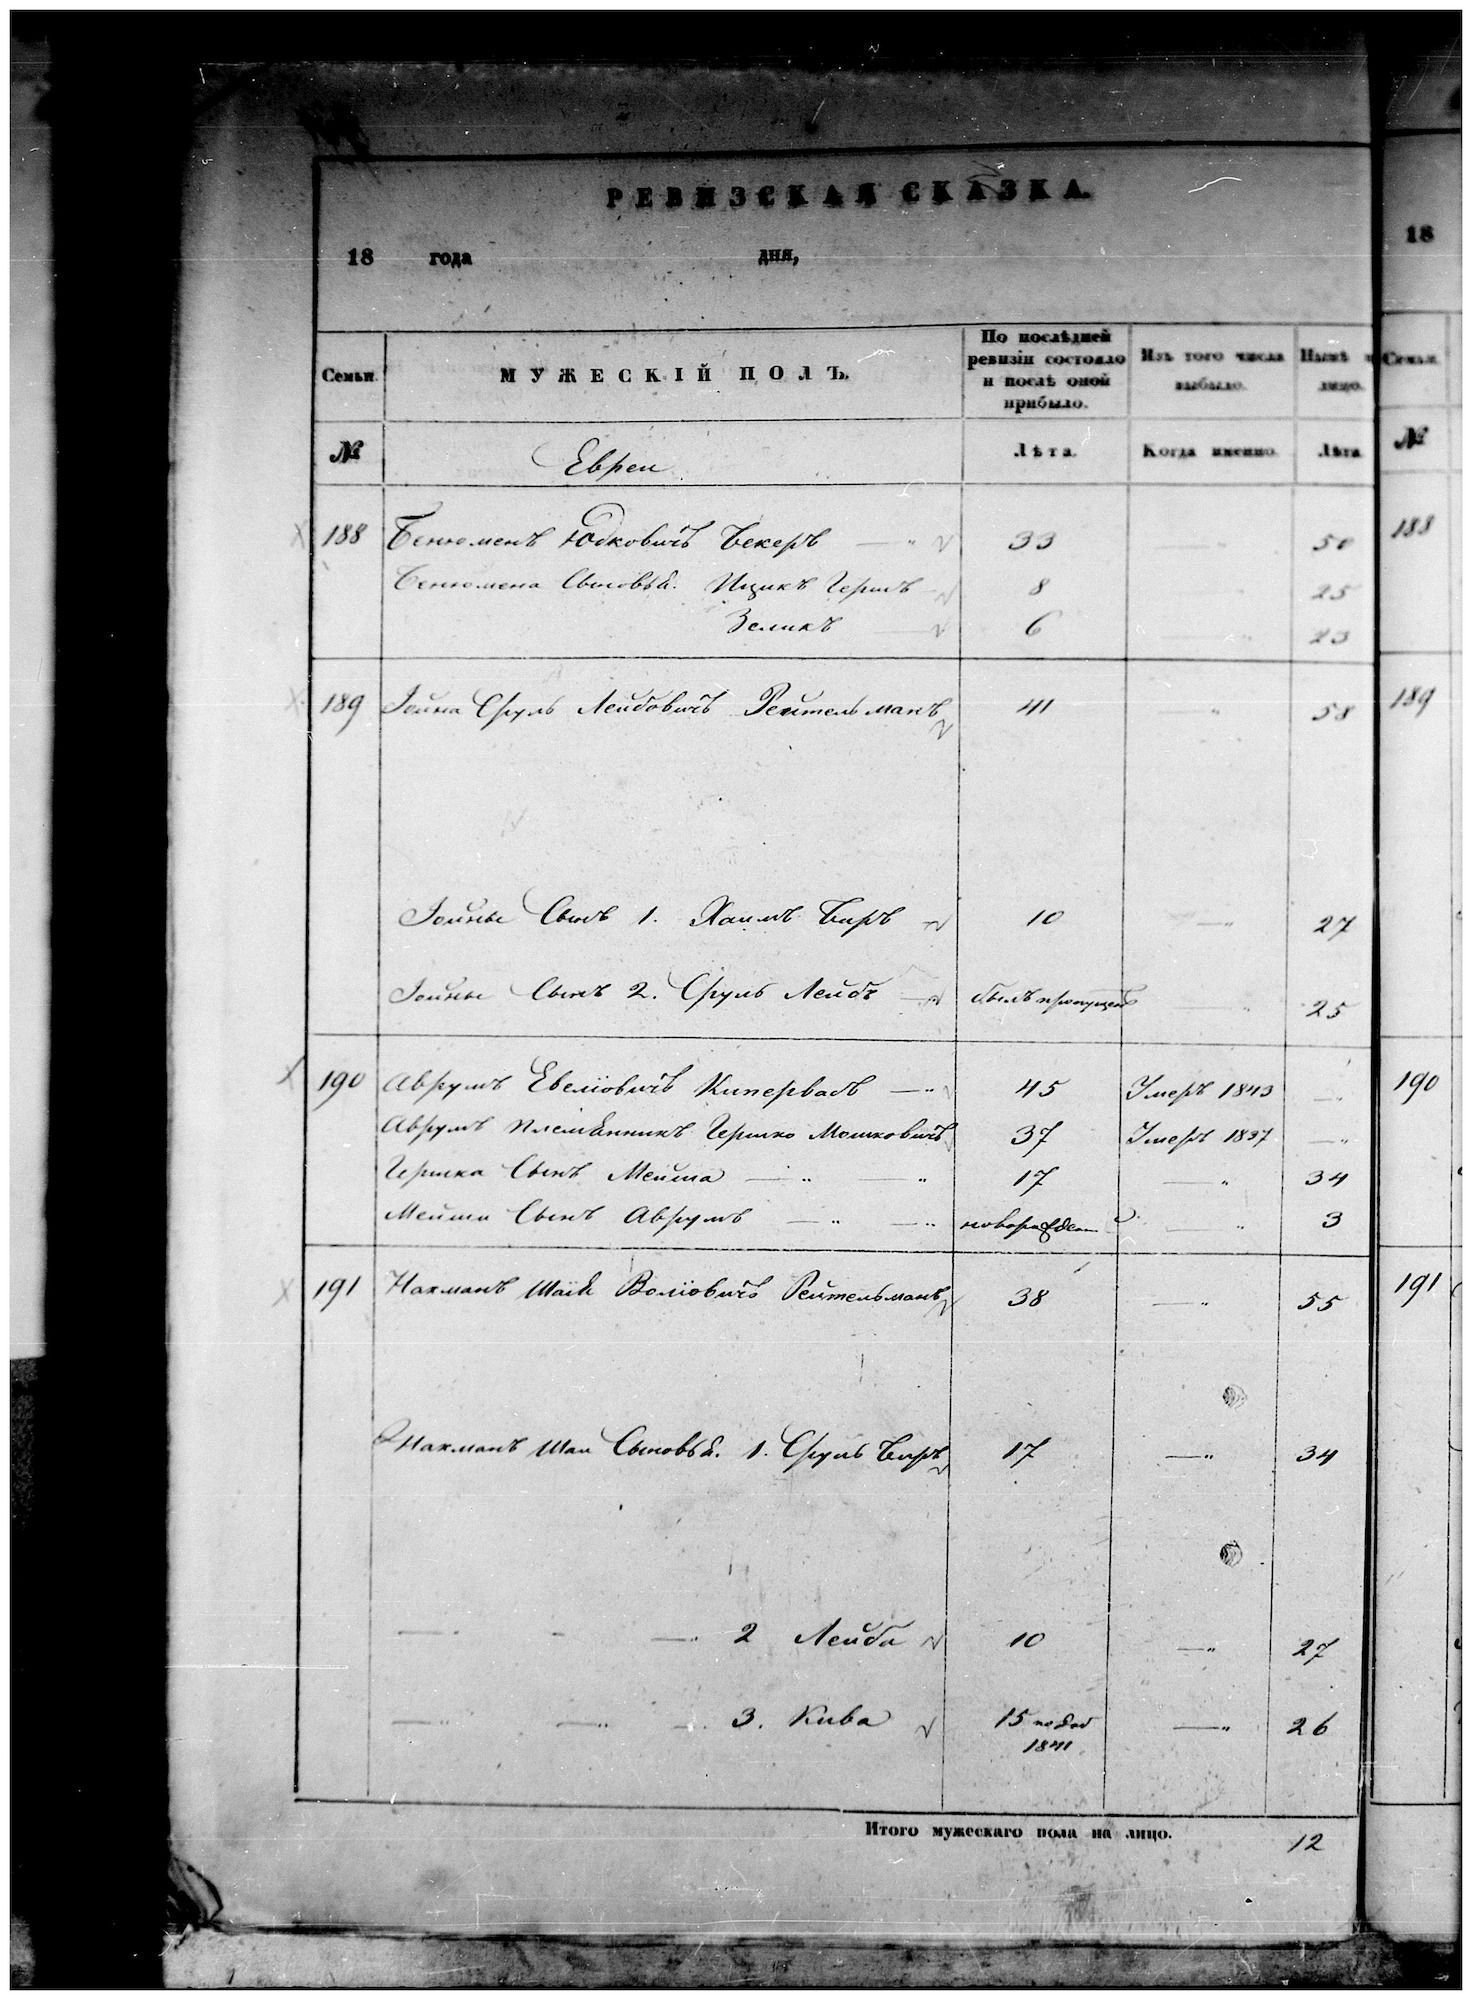 РЕВИЗСКАЯ СКАЗКА.
18 года дня,
Семьи. МУЖЕСКІЙ ПОЛЪ. По послѣдней ревизіи состояло и послѣ оной прибыло. Изъ того числа выбыло. Нынѣ лицо.
№ Евреи Лѣта. Когда именно. Лѣта
188 Бенюменъ Юдковичъ Бекеръ — " 33 — " 50
Бенюмена Сыновья. Ицикъ Гершъ 8 25
Зеликъ — 6 — " 23
189 Іойна Сруль Лейбовичъ Рейтельманъ 41 — " 58
Іойны Сынъ 1. Хаимъ Беръ 10 — " 27
Іойны Сынъ 2. Сруль Лейбъ — былъ пропущенъ — " 25
190 Аврумъ Евеліовичъ Кипервасъ — " 45 Умеръ 1843 — "
Аврумъ племянникъ Гершко Мошковичъ 37 Умеръ 1837 — "
Гершка Сынъ Мейша — " — " 17 — " 34
Мейши Сынъ Аврумъ — " — " новорожден — " 3
191 Нахманъ Шаія Воліовичъ Рейтельманъ 38 — " 55
Нахманъ Шаи Сыновья. 1. Сруль Беръ 17 — " 34
— " - — " 2 Лейба 10 — " 27
— " — " — " 3. Кива 15 по доб — " 26
1841
Итого мужескаго пола на лицо. 12
18
Семьи.
№
188
189
190
191